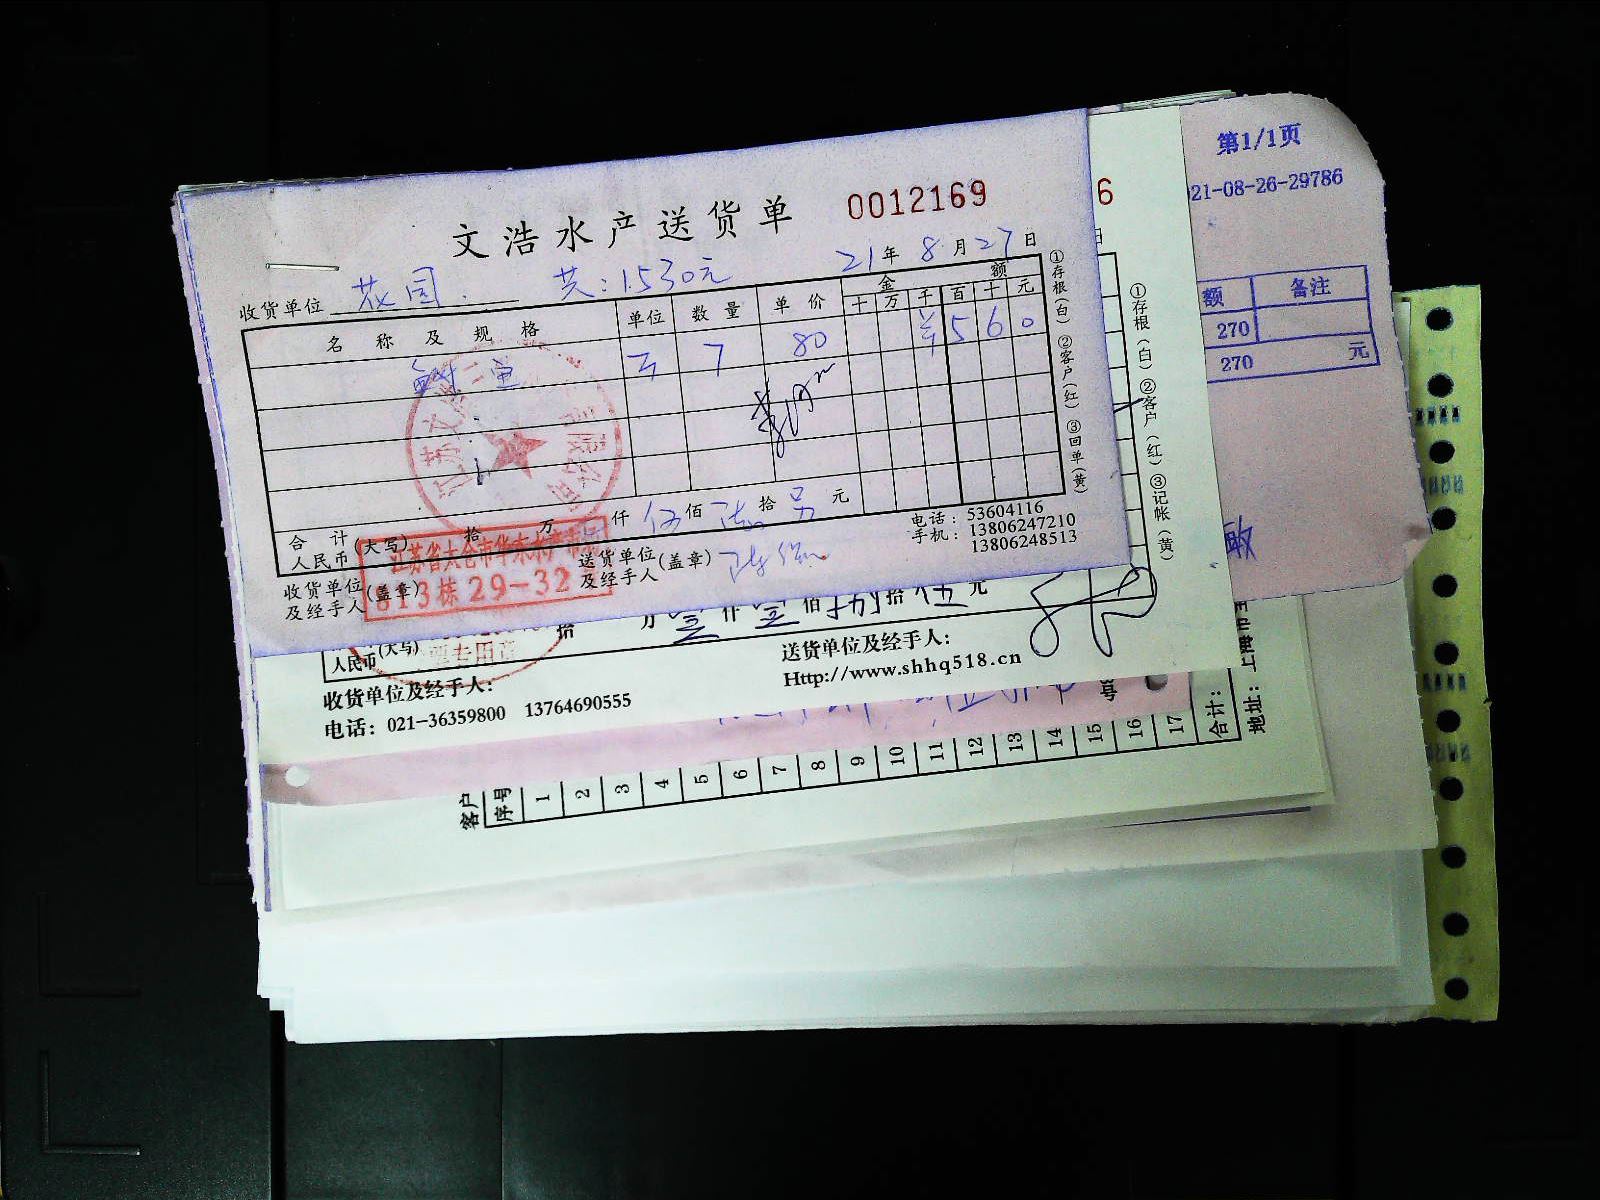 文浩水产送货单 0012169
21年8月27日
收货单位 共:1530元
名称及规格 单位 数量 单价 金额
十 万 千 百 十 元
7 80 ¥ 5 6 0
合计
人民币(大写) 拾 万 仟 伍佰 陆拾 另元
电话:53604116
手机:13806247210
13806248513
收货单位
及经手人(盖章)
送货单位
及经手人(盖章)
①存根(白) ②客户(红) ③回单(黄)
江苏省太仓市华东水产市场
813栋29-32
6
日
①存根(白) ②客户(红) ③记帐(黄)
人民币(大写) 拾 万 仟 佰 拾 元
专用章
收货单位及经手人:
送货单位及经手人:
电话:021-36359800 13764690555
Http://www.shhq518.cn
第1/1页
21-08-26-29786
额 备注
270
270 元
敏
客户
序号 1 2 3 4 5 6 7 8 9 10 11 12 13 14 15 16 17
合计:
地址: